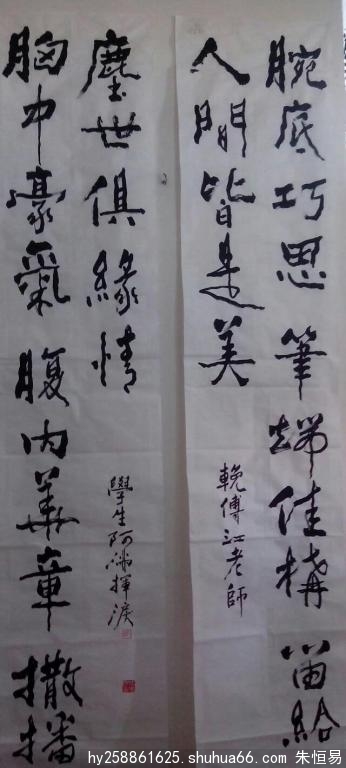 腕底巧思筆端佳構留給
人間皆是美
輓傅江老師
胸中豪氣腹内華章撒播
塵世俱緣情
學生阿揮淚
hy258861625.shuhua66.com 朱恒易